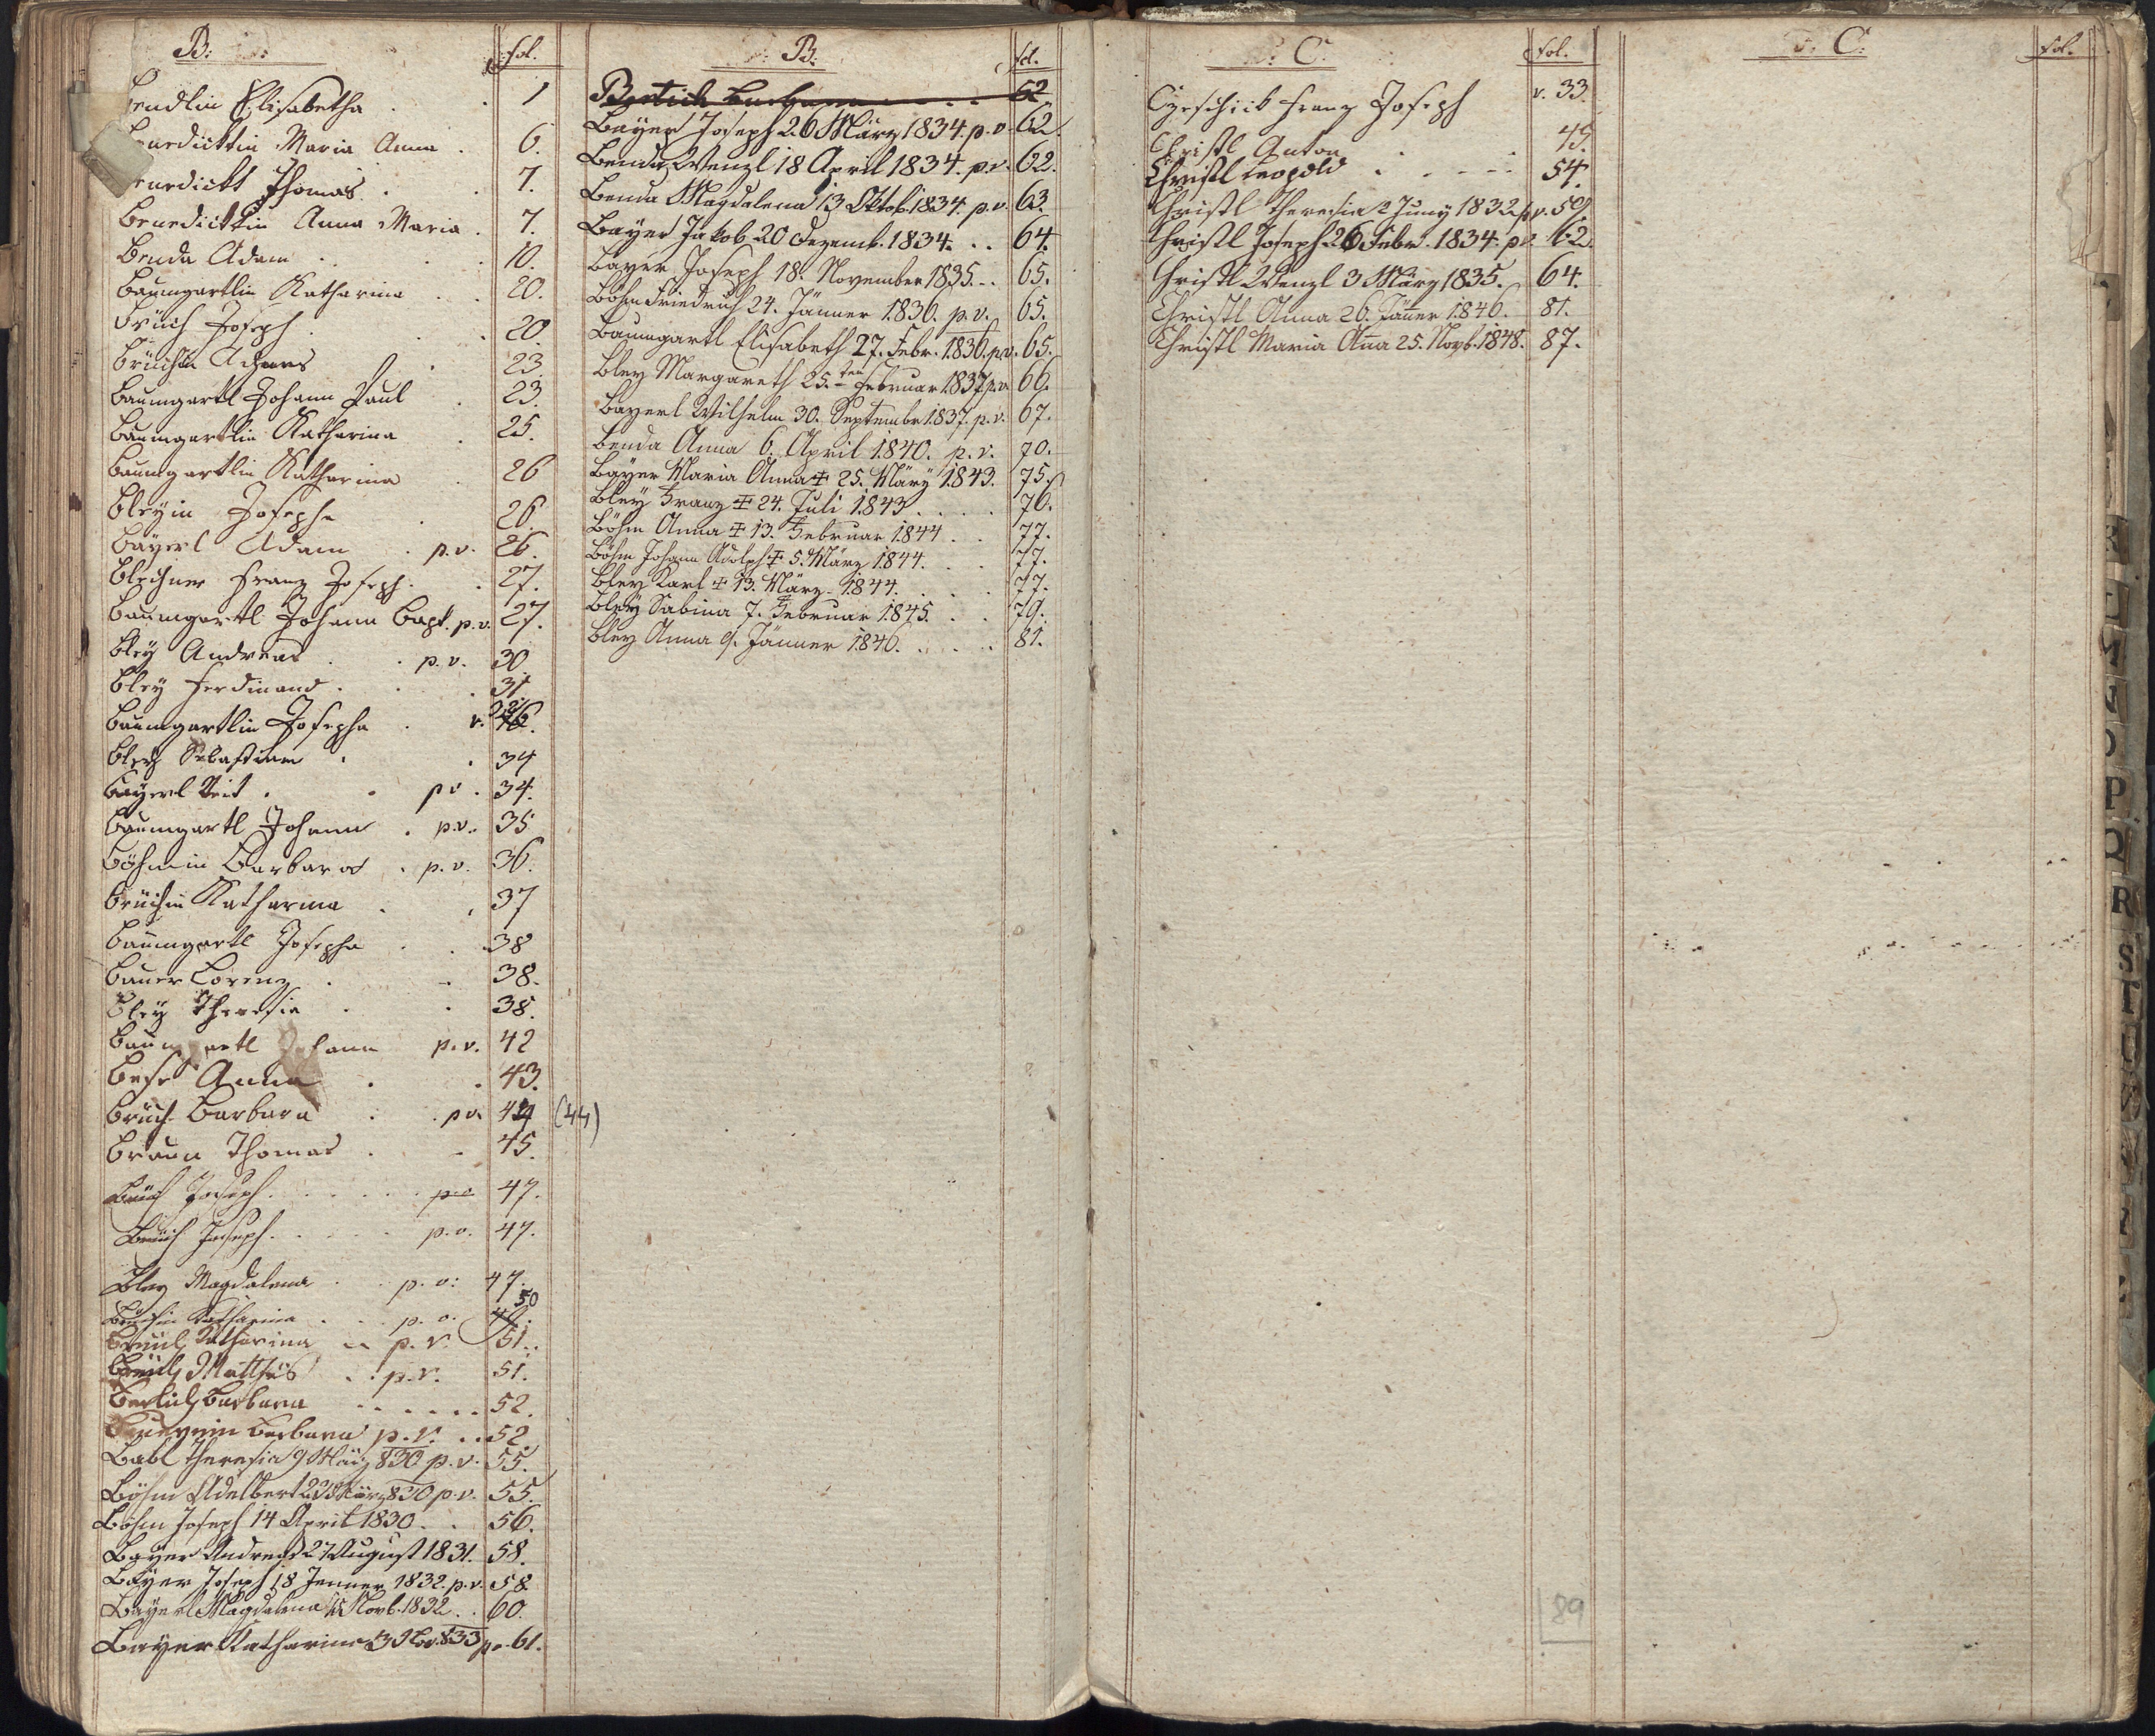 B: fol.
Bendlin Elisabetha . . 1
Benedicktin Maria Anna . 6.
Benedickt Thomas . . 7.
Benedicktin Anna Maria . 7.
Benda Adam . . . 10.
Baumgartlin Katharina . . 20.
Brüch Joseph . . . 20.
Brüchin Agnes . 23.
Baumgartl Johann Paul . 23.
Baumgartlin Katharina . 25.
Baumgartlin Katharina . 26
Bleÿin Josepha . 26.
Baÿerl Adam . p.v. 26.
Blechner Franz Joseph . . 27.
Baumgartl Johann Bapt. p.v. 27.
Bleÿ Andreas . . p.v. 30
Bleÿ Ferdinand . . . 31
Baumgartlin Josepha . v.
Bleÿ Sebastian . . 34
Baÿerl Veit . . pv. 34.
Baumgartl Johann . p.v. 35
Böhmin Barbara . p.v. 36.
Brüchin Katharina . . 37
Baumgartl Josepha . . 38
Bauer Lorenz . . 38.
Bleÿ Theresia . . 38.
Baumgartl Johann p.v. 42
Anna . . 43.
Brüch Barbara . . pv. 44 (44)
Braun Thomas . . 45.
Brüch Joseph . . . . . pv 47.
Brüch Joseph . . . . . p.v. 47.
Bley Magdalena . . p.v: 47.
Brüchin Katharina . . . p.v. 50
Brüch Katharina . . p.v. 51.
Brüch Mathes . . p.v. 51.
Bertich Barbara . . . . . . 52.
Barbara p.v. . . 52.
Babl Theresia 9 März 830 p.v. 55.
Böhm Adelbert 22 März 830 p.v. 55.
Böhm Joseph 14 April 1830 . . 56.
Bayer Andreas 27 August 1831. 58.
Bayer Joseph 18 Jenner 1832. p.v. 58.
Bayerl Magdalena Novb. 1832 . . 60.
Bayer Katharina 3 Nov. 833 pv. 61.
B: fol.
Bertich Barbara . . . . 52
Bayer Joseph 26 März 1834. p.v. 62.
Benda Wenzl 18 April 1834. p.v. 62.
Benda Magdalena 13 Oktob. 1834. p.v. 63.
Bayer Jakob 20 Dezemb. 1834. . . 64.
Bayer Joseph 18. November 1835. . . 65.
Böhm Friedrich 24. Jänner 1836. p.v. 65.
Baumgartl Elisabeth 27. Febr. 1836. p.v. 65.
Bley Margareth 25.ten Februar 1837. p.v. 66.
Bayerl Wilhelm 30. Septembr 1837. p.v. 67.
Benda Anna 6. April 1840. p.v. 70.
Bayer Maria Anna ‡ 25. März 1843. 75.
Bleÿ Franz ‡ 24. Juli 1843 . . . . 76.
Böhm Anna ‡ 13. Februar 1844 . . 77.
Böhm Johann Adolph ‡ 5. März 1844. . . 77.
Bleÿ Karl ‡ 13. März 1844. . . . 77.
Bleÿ Sabina 7. Februar 1845. . . 79.
Bley Anna 9. Jänner 1846. . . . . 81.
C. fol.
Franz Joseph v. 33.
Christl Anton . . 45.
Christl Leopold . . . . . 54.
Christl Theresia 2 Juny 1832 pv. 59
Christl Joseph 26 Febr. 1834. pv. 62
Christl Wenzl 3 März 1835. 64.
Christl Anna 26. Jänner 1846. 81.
Christl Maria Ana 25. Novb. 1848. 87.
89
C. fol.
M
P
Q
R
S
T